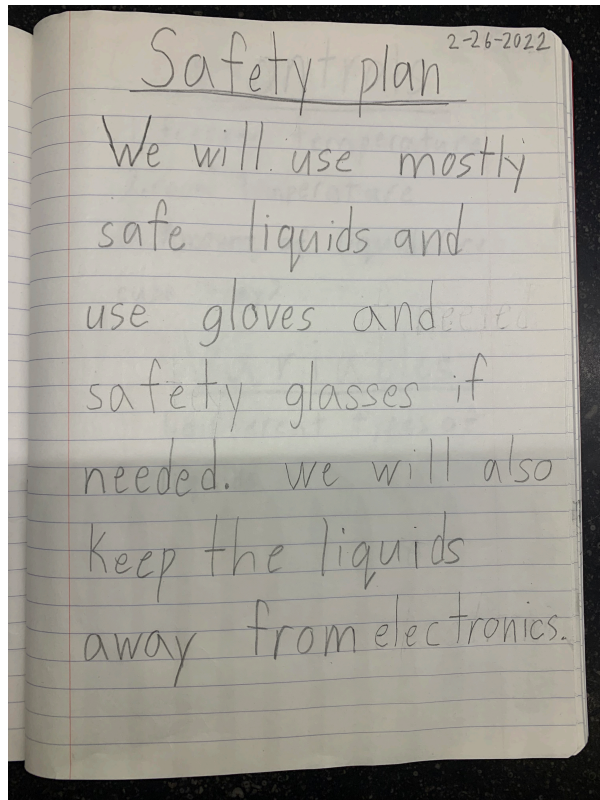 2-26-2022
Safety plan
We will use mostly
safe liquids and
use gloves and
safety glasses if
needed. we will also
keep the liquids
away from electronics.